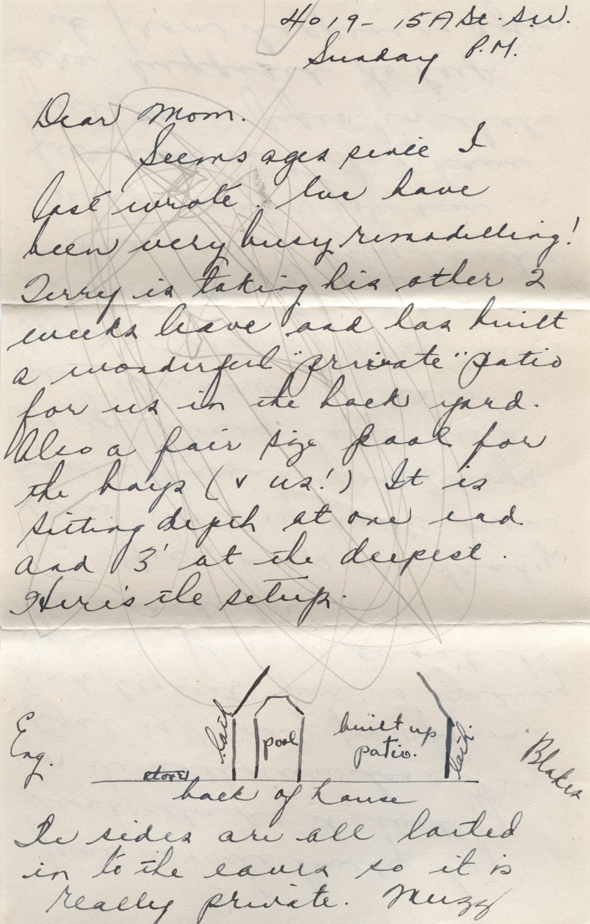 4019 - 15A St. S.W.
Sunday P.M.
Dear Mom.
Seems ages since I
last wrote. We have
been very busy remodelling!
Terry is taking his other 2
weeks leave and has built
a wonderful "private" patio
for us in the back yard.
Also a fair size pool for
the boys (& us!) It is
sitting depth at one end
and 3' at the deepest.
Here's the setup.
Eng.
lath
pool
built up
patio.
lath
Blakes
back of house
Te sides are all lathed
in to the eaves so it is
really private. Muzz